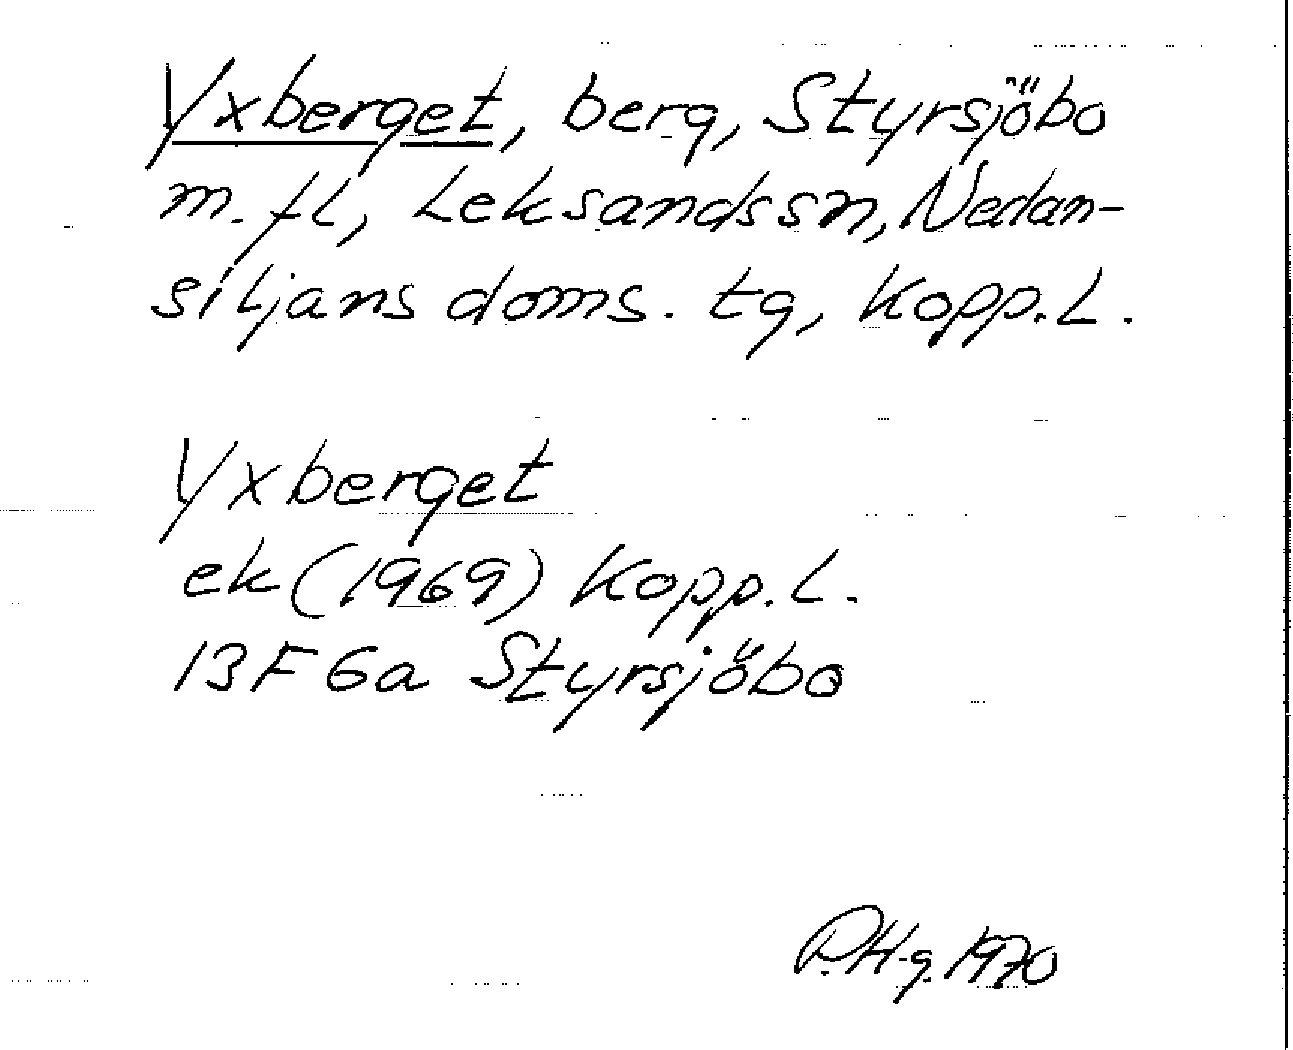 Yxberget, berg, Styrsjöbo
m. fl, Leksands sn, Nedan-
siljans doms. tg, Kopp. L.
Yxberget
ek (1969) Kopp. L.
13F 6a Styrsjöbo
P.Hg. 1970